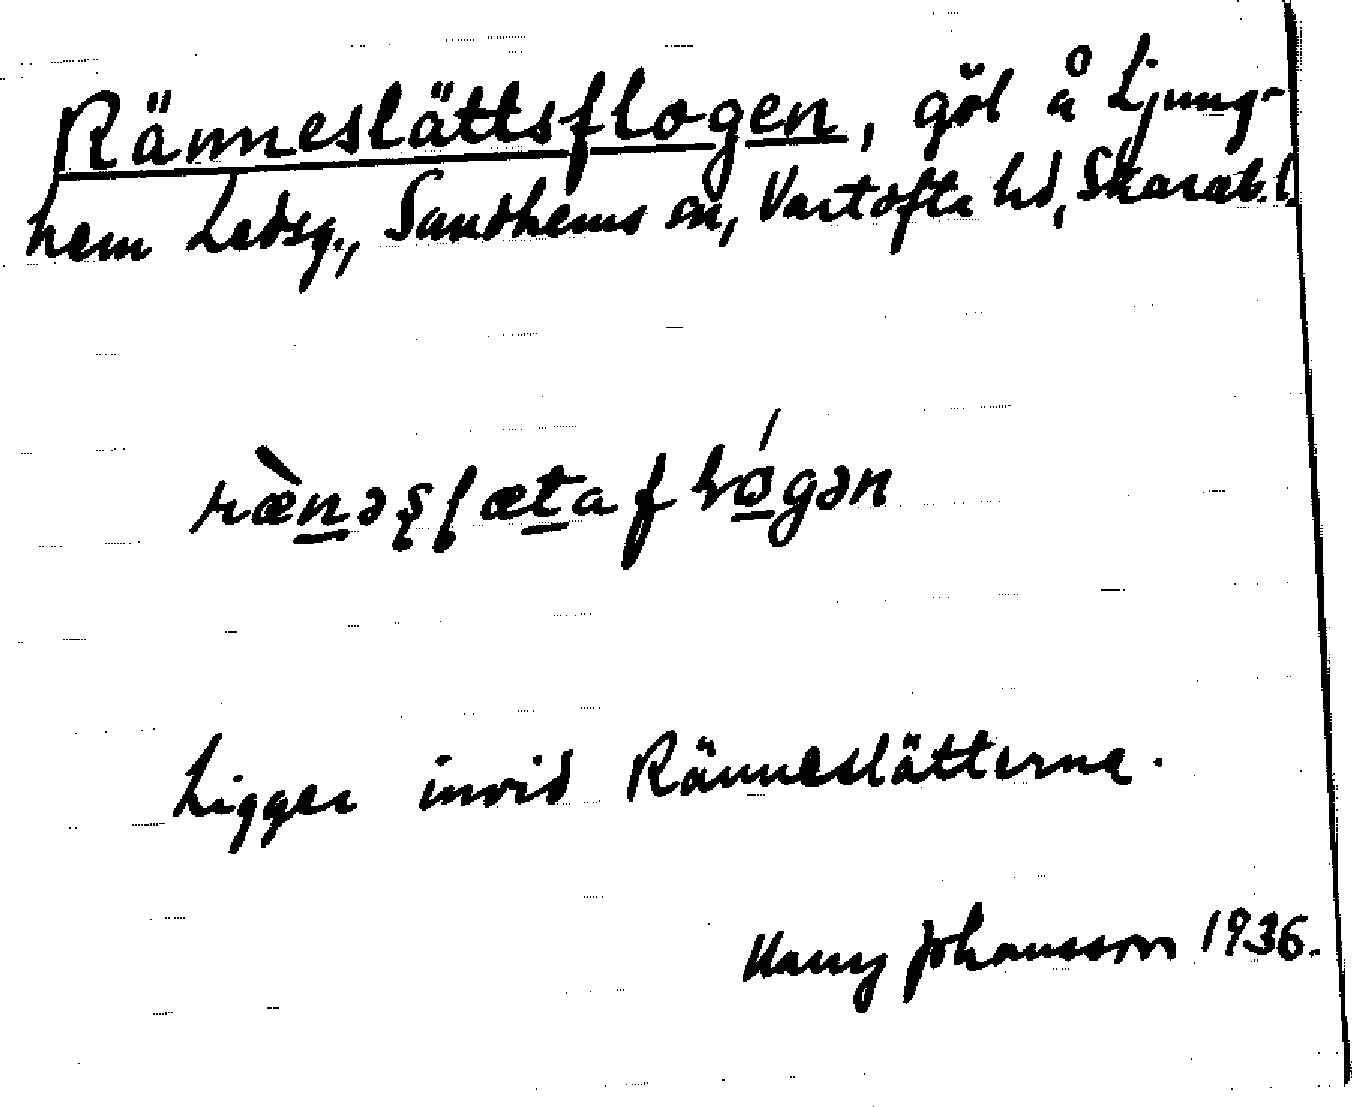 Ränneslättsflogen, göl å Ljung-
hem Ledsg., Sandhems sn, Vartofta hd, Skarab.l.
Ligger invid Ränneslätterne.
Harry Johansson 1936.